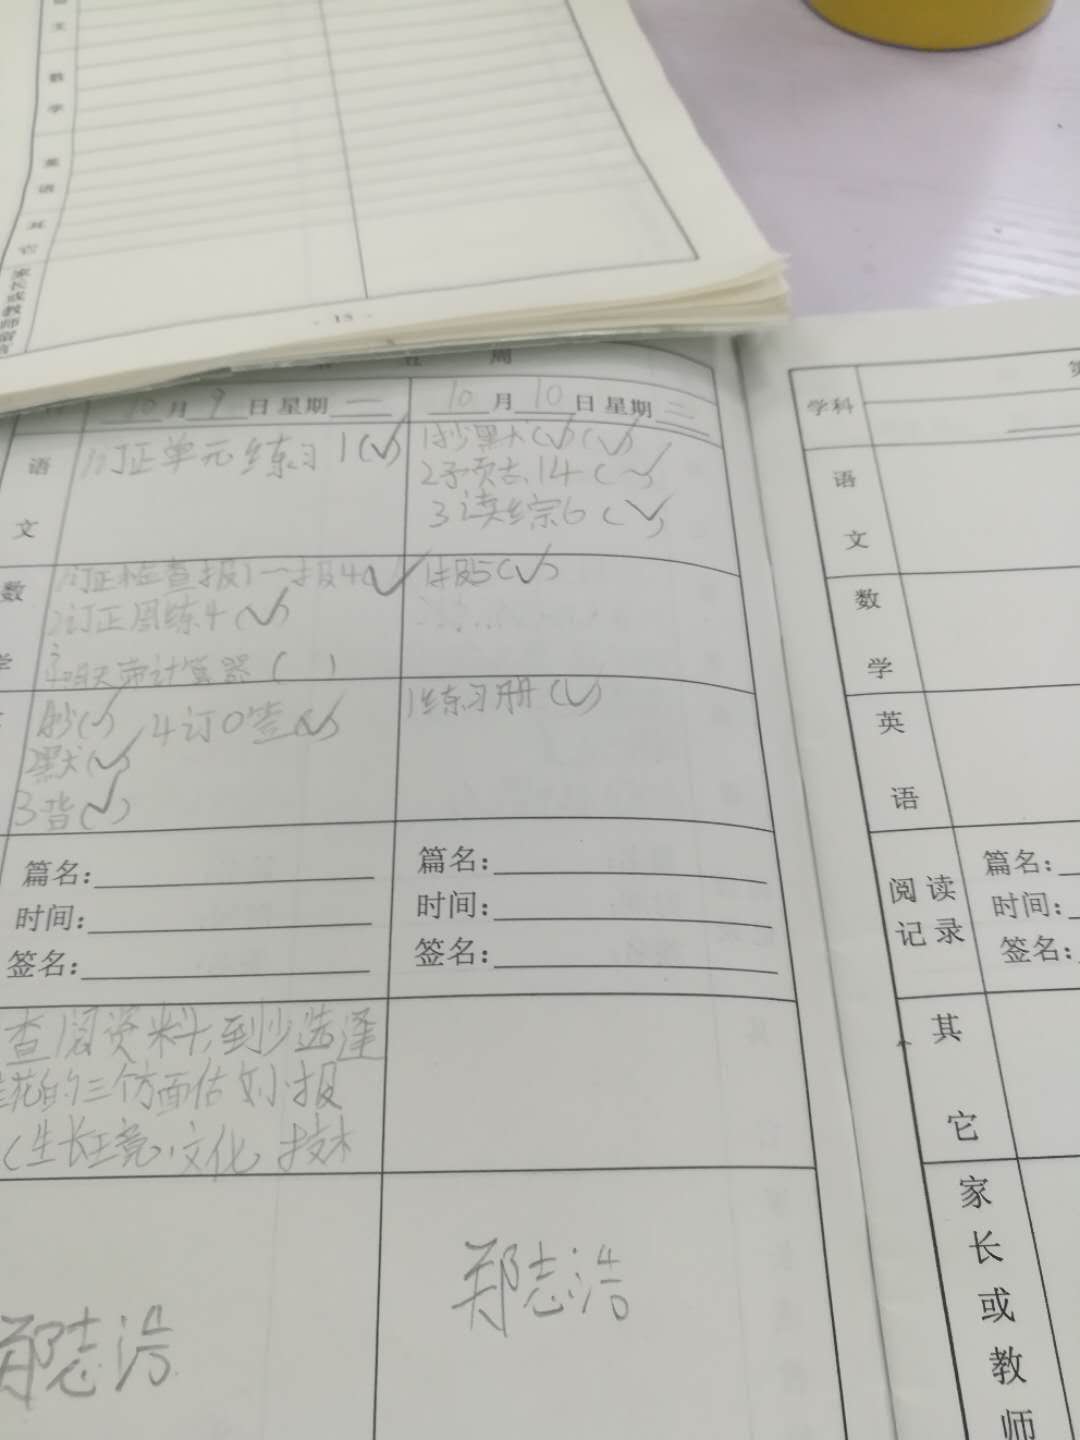 文
数
学
英
语
其
它
家长或教师留言
- 13 -
五 周
10月9日 星期一
10月10日 星期二
学科
语
文
1订正单元练习1(✓)
1抄黑犬(✓)(✓)
14(✓)
3读综6(✓)
语
文
数
学
1订正检查报1一报4(✓)
2订正周练4(✓)
3明天带计算器( )
1报5(✓)
数
学
1抄(✓) 4订0壹(✓)
2默(✓)
3背(✓)
1练习册(✓)
英
语
篇名:
时间:
签名:
篇名:
时间:
签名:
阅读
记录
篇名:
时间:
签名:
查阅资料,到少选泽
花的三个方面估如小报
(生长环竟,文化,技术
其
它
郑志浩
郑志浩
家
长
或
教
师